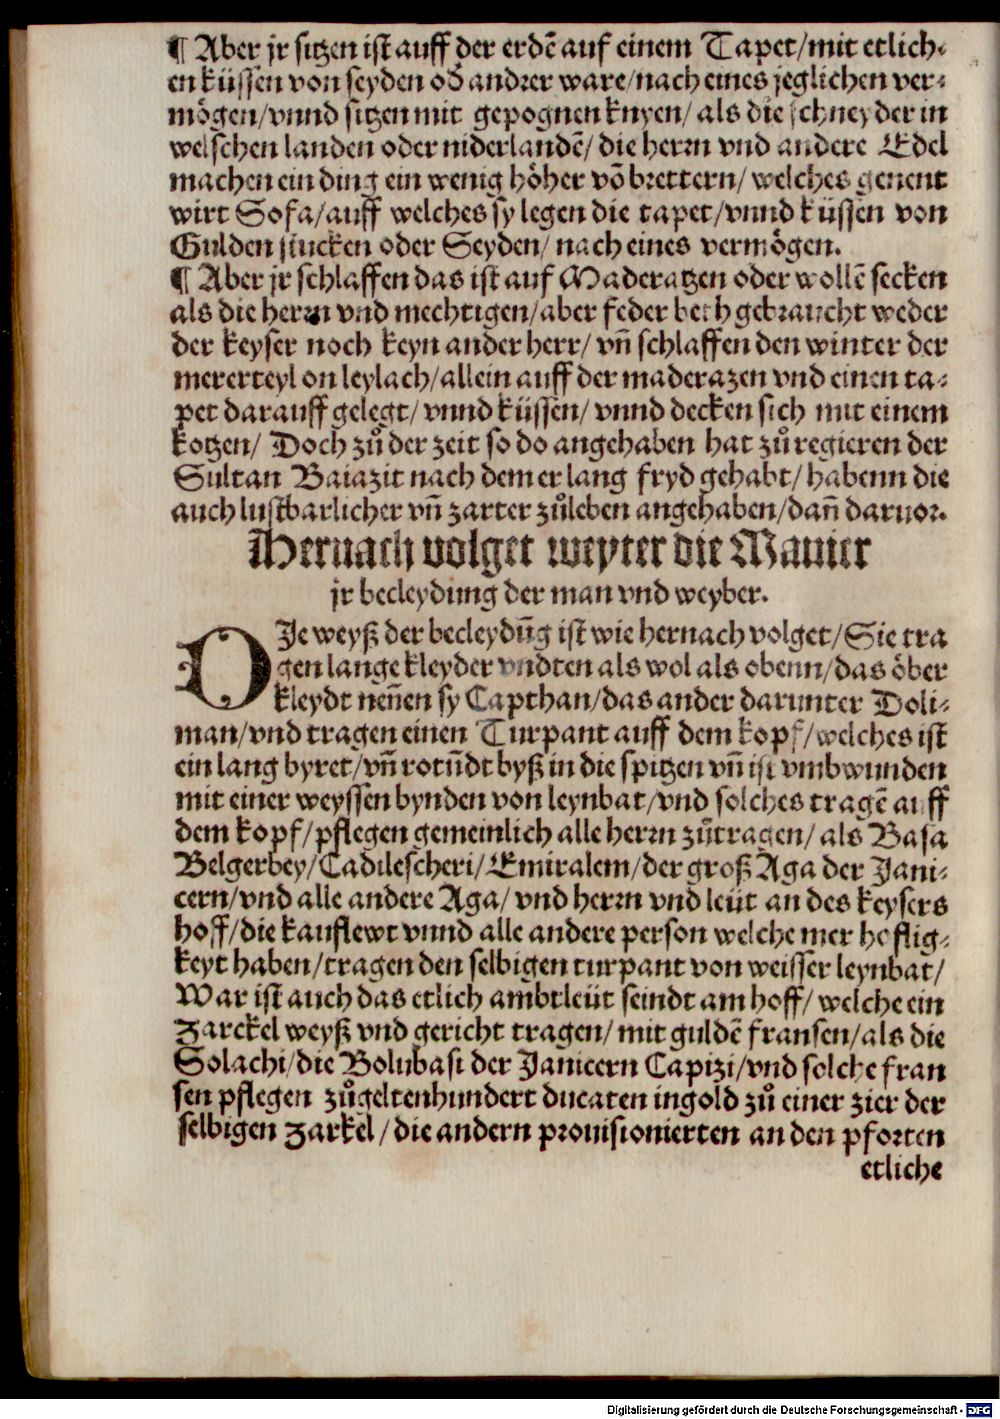 ¶ Aber jr sitzen ist auff der erdē auf einem Tapet/mit etlich-
en küssen von seyden od̛ andrer ware/nach eines jeglichen ver-
mögen/vnnd sitzen mit gepognen knyen/ als die schneyder in
welschen landen oder niderlandē/ die herrn vnd andere Edel
machen ein ding ein wenig höher vō brettern/ welches genent
wirt Sofa/auff welches sy legen die tapet/vnnd küssen von
Gulden stucken oder Seyden/ nach eines vermögen.
¶ Aber jr schlaffen das ist auf Maderatzen oder wollē secken
als die herrn vnd mechtigen/aber feder beth gebraucht weder
der keyser noch keyn ander herr/ vñ schlaffen den winter der
mererteyl on leylach/allein auff der maderazen vnd einen ta-
pet darauff gelegt/ vnnd küssen/ vnnd decken sich mit einem
kotzen/ Doch zů der zeit so do angehaben hat zů regieren der
Sultan Baiazit nach dem er lang fryd gehabt/ habenn die
auch lustbarlicher vñ zarter zůleben angehaben/dañ daruor.
Hernach volget weyter die Manier
jr becleydung der man vnd weyber.
DJe weyß der becleydūg ist wie hernach volget/Sie tra
gen lange kleyder vndten als wol als obenn/das öber
kleydt neñen sy Capthan/das ander darunter Doli-
man/vnd tragen einen Turpant auff dem kopf/welches ist
ein lang byret/vñ rotūdt byß in die spitzen vñ ist vmbwunden
mit einer weyssen bynden von leynbat/vnd solches tragē auff
dem kopf/pflegen gemeinlich alle herrn zůtragen/ als Basa
Belgerbey/Cadilescheri/Emiralem/der groß Aga der Jani-
cern/vnd alle andere Aga/ vnd herrn vnd leüt an des keysers
hoff/die kauflewt vnnd alle andere person welche mer hoflig-
keyt haben/tragen den selbigen turpant von weisser leynbat/
War ist auch das etlich ambtleüt seindt am hoff/ welche ein
Zarckel weyß vnd gericht tragen/ mit guldē fransen/als die
Solachi/die Bolubasi der Janicern Capizi/vnd solche fran
sen pflegen zůgelten hundert ducaten in gold zů einer zier der
selbigen zarkel/die andern prouisionierten an den pforten
etliche
Digitalisierung gefördert durch die Deutsche Forschungsgemeinschaft - DFG